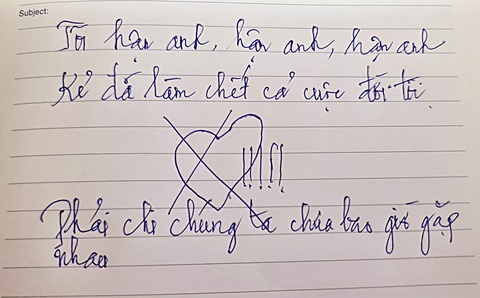 Subject:
Tôi hận anh, hận anh, hận anh
Kẻ đã làm chết cả cuộc đời tôi
!!!!
Phải chi chúng ta chưa bao giờ gặp
nhau